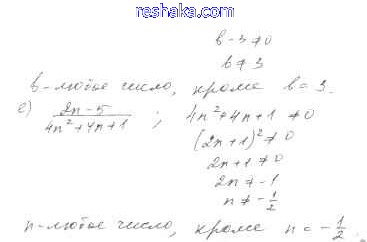 reshaka.com
b - 3 ≠ 0
b ≠ 3
b - любое число, кроме b = 3.
е) (2n - 5)/(4n² + 4n + 1) ; 4n² + 4n + 1 ≠ 0
(2n + 1)² ≠ 0
2n + 1 ≠ 0
2n ≠ -1
n ≠ -1/2
n - любое число, кроме n = -1/2.